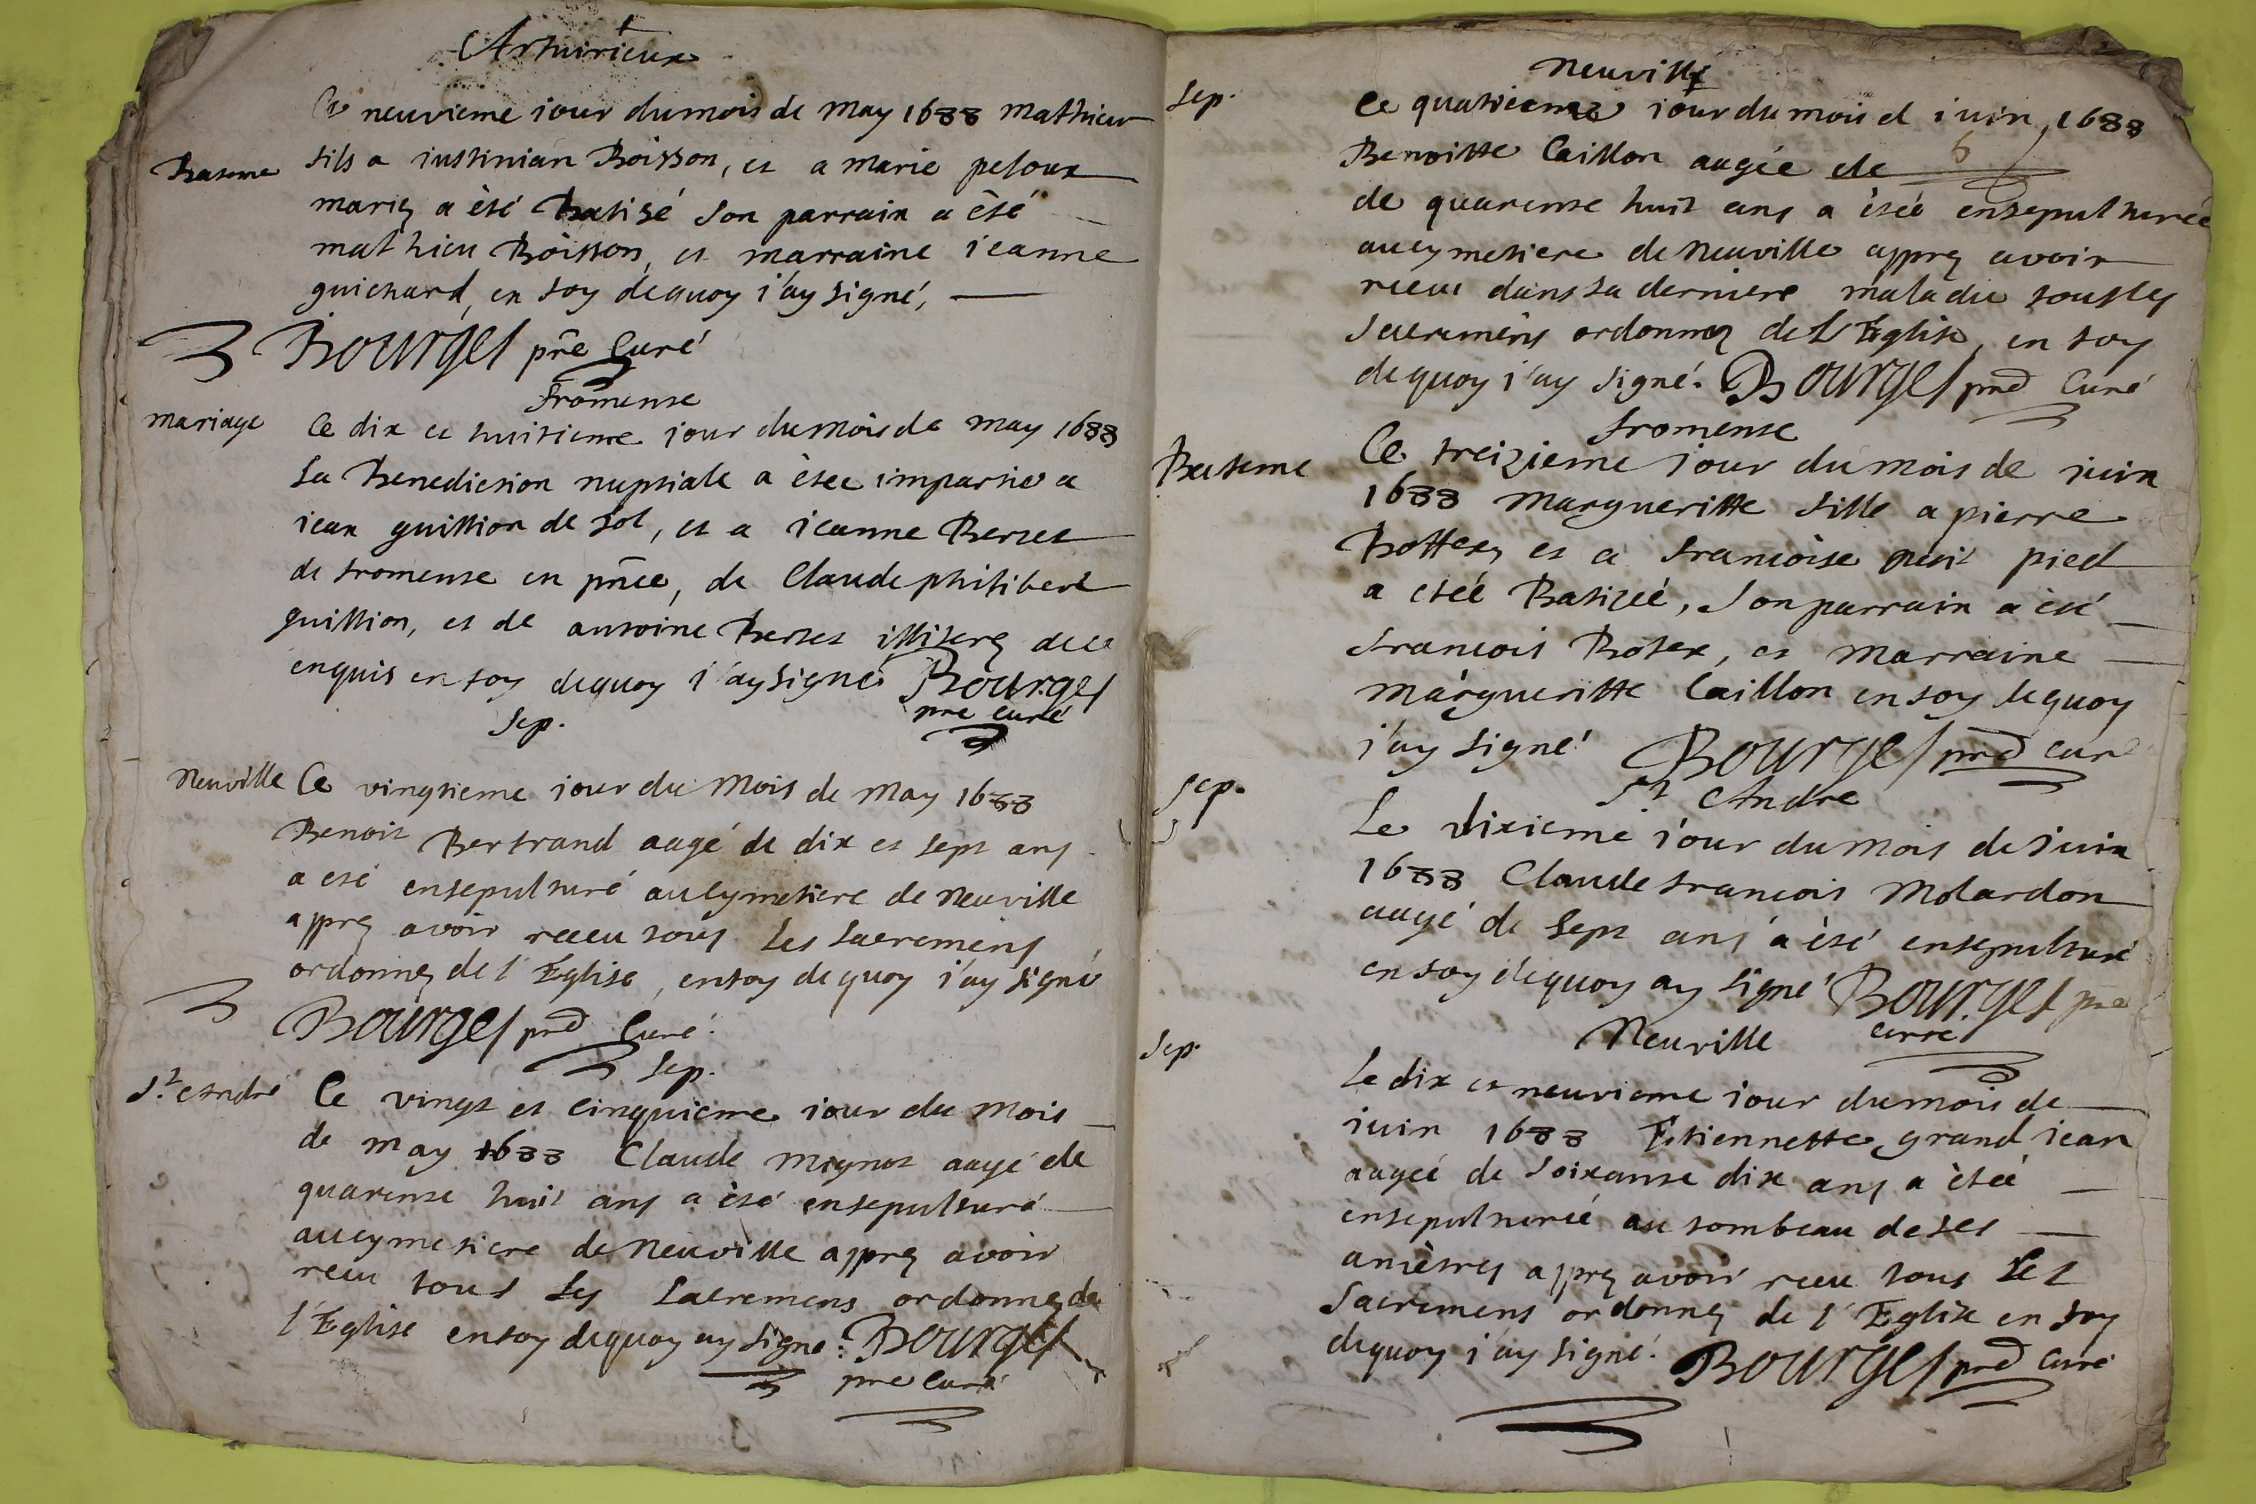 Artuirieux
Ce neuvieme iour du mois de may 1688 mathieu
Bateme fils a iustinian Boisson, et a marie peloux
mariez a èté Batisé son parrain a èté
mathieu Boisson, et marraine ieanne
guichard, en foy dequoy i'ay signé,
Bourges pre Curé
fromente
mariage Ce dix et huitieme iour du mois de may 1688
la Benediction nuptiale a ètee impartie a
iean guillion de sol, et a ieanne Bertet
de fromente en pnce, de Claude philibert
guillion, et de antoine Bertet illiterez de ce
enquis en foy dequoy i'ay signé Bourges
pre curé
Sep.
Neuville Ce vingtieme iour du mois de may 1688
Benoit Bertrand aagé de dix et sept ans
a eté ensepulturé au cymetiere de neuville
apprez avoir receu tous les sacremens
ordonnez de l'Eglise, en foy de quoy i'ay signé
Bourges pre Curé.
Sep.
St André Ce vingt et cinquieme iour du mois
de may 1688 Claude mignot aagé de
quarente huit ans a èté ensepulturé
au cymetiere de neuville apprez avoir
receu tous les sacremens ordonnez de
l'Eglise en foy dequoy ay signé: Bourges
pre Curé
neuville
Sep. Ce quatrieme iour du mois d iuin, 1688
Benoitte Caillon aagée de
de quarente huit ans a ètée ensepulturée
au cymetiere de neuville apprez avoir
receu dans sa derniere maladie tous les
sacremens ordonnez de l'Eglise, en foy
de quoy i'ay signé. Bourges pre Curé
fromente
Bateme Ce treizieme iour du mois de iuin
1688 margueritte fille a pierre
Bottex et a francoise petit pied
a etée Batizée, son parrain a èté
francois Botex, et marraine
margueritte Caillon en foy de quoy
i'ay signé Bourges pre curé
St Andre
Sep. Le dixieme iour du mois de iuin
1688 Claude francois molardon
aagé de sept ans a èté ensepulturé
en foy dequoy ay signé Bourges pre
curré
Neuville
Sep. Le dix et neuvieme iour du mois de
iuin 1688 Etiennette grand iean
aageé de soixante dix ans a ètée
ensepulturée au tombeau de ses
ancètres apprez avoir receu tous les
sacremens ordonnez de l'Eglise en foy
dequoy i'ay signé. Bourges pre Curé